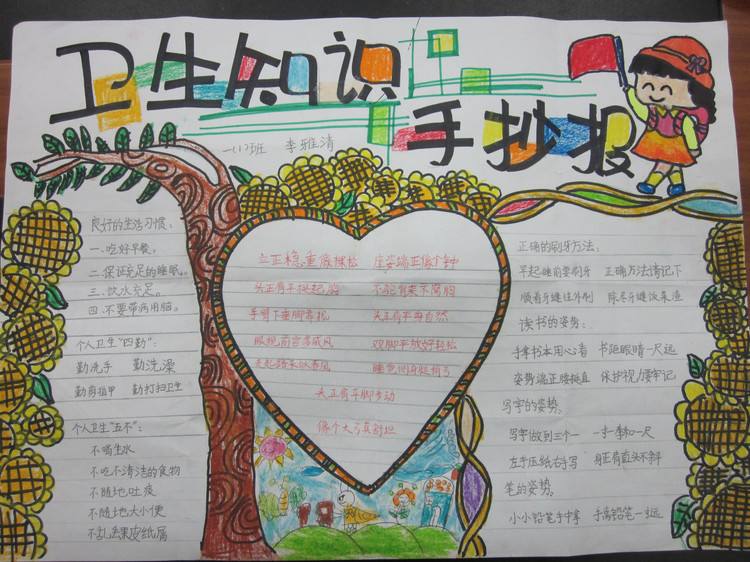 卫生知识
手抄报
一(1)班 李雅清
良好的生活习惯:
一.吃好早餐。
二.保证充足的睡眠。
三.饮水充足。
四.不要带病用脑。
个人卫生"四勤":
勤洗手 勤洗澡
勤剪指甲 勤打扫卫生
个人卫生"五不":
不喝生水
不吃不清洁的食物
不随地吐痰
不随地大小便
不乱丢果皮纸屑
立正稳重像棵松 座姿端正像个钟
头正肩平挺起胸
手臂下垂脚靠拢 头正肩平两自然
眼视前方 双脚平放好轻松
头正肩平脚步动
正确的刷牙方法:
早起睡前要刷牙 正确方法请记下
顺着牙缝往外刷 除尽牙缝饭菜渣
读书的姿势:
手拿书本用心看 书距眼睛一尺远
姿势端正腰挺直 保护视力要牢记
写字的姿势。
写字做到三个一 一寸一拳和一尺
左手压纸右手写 身正肩直头不斜
笔的姿势。
小小铅笔手中拿 手离铅笔一寸远